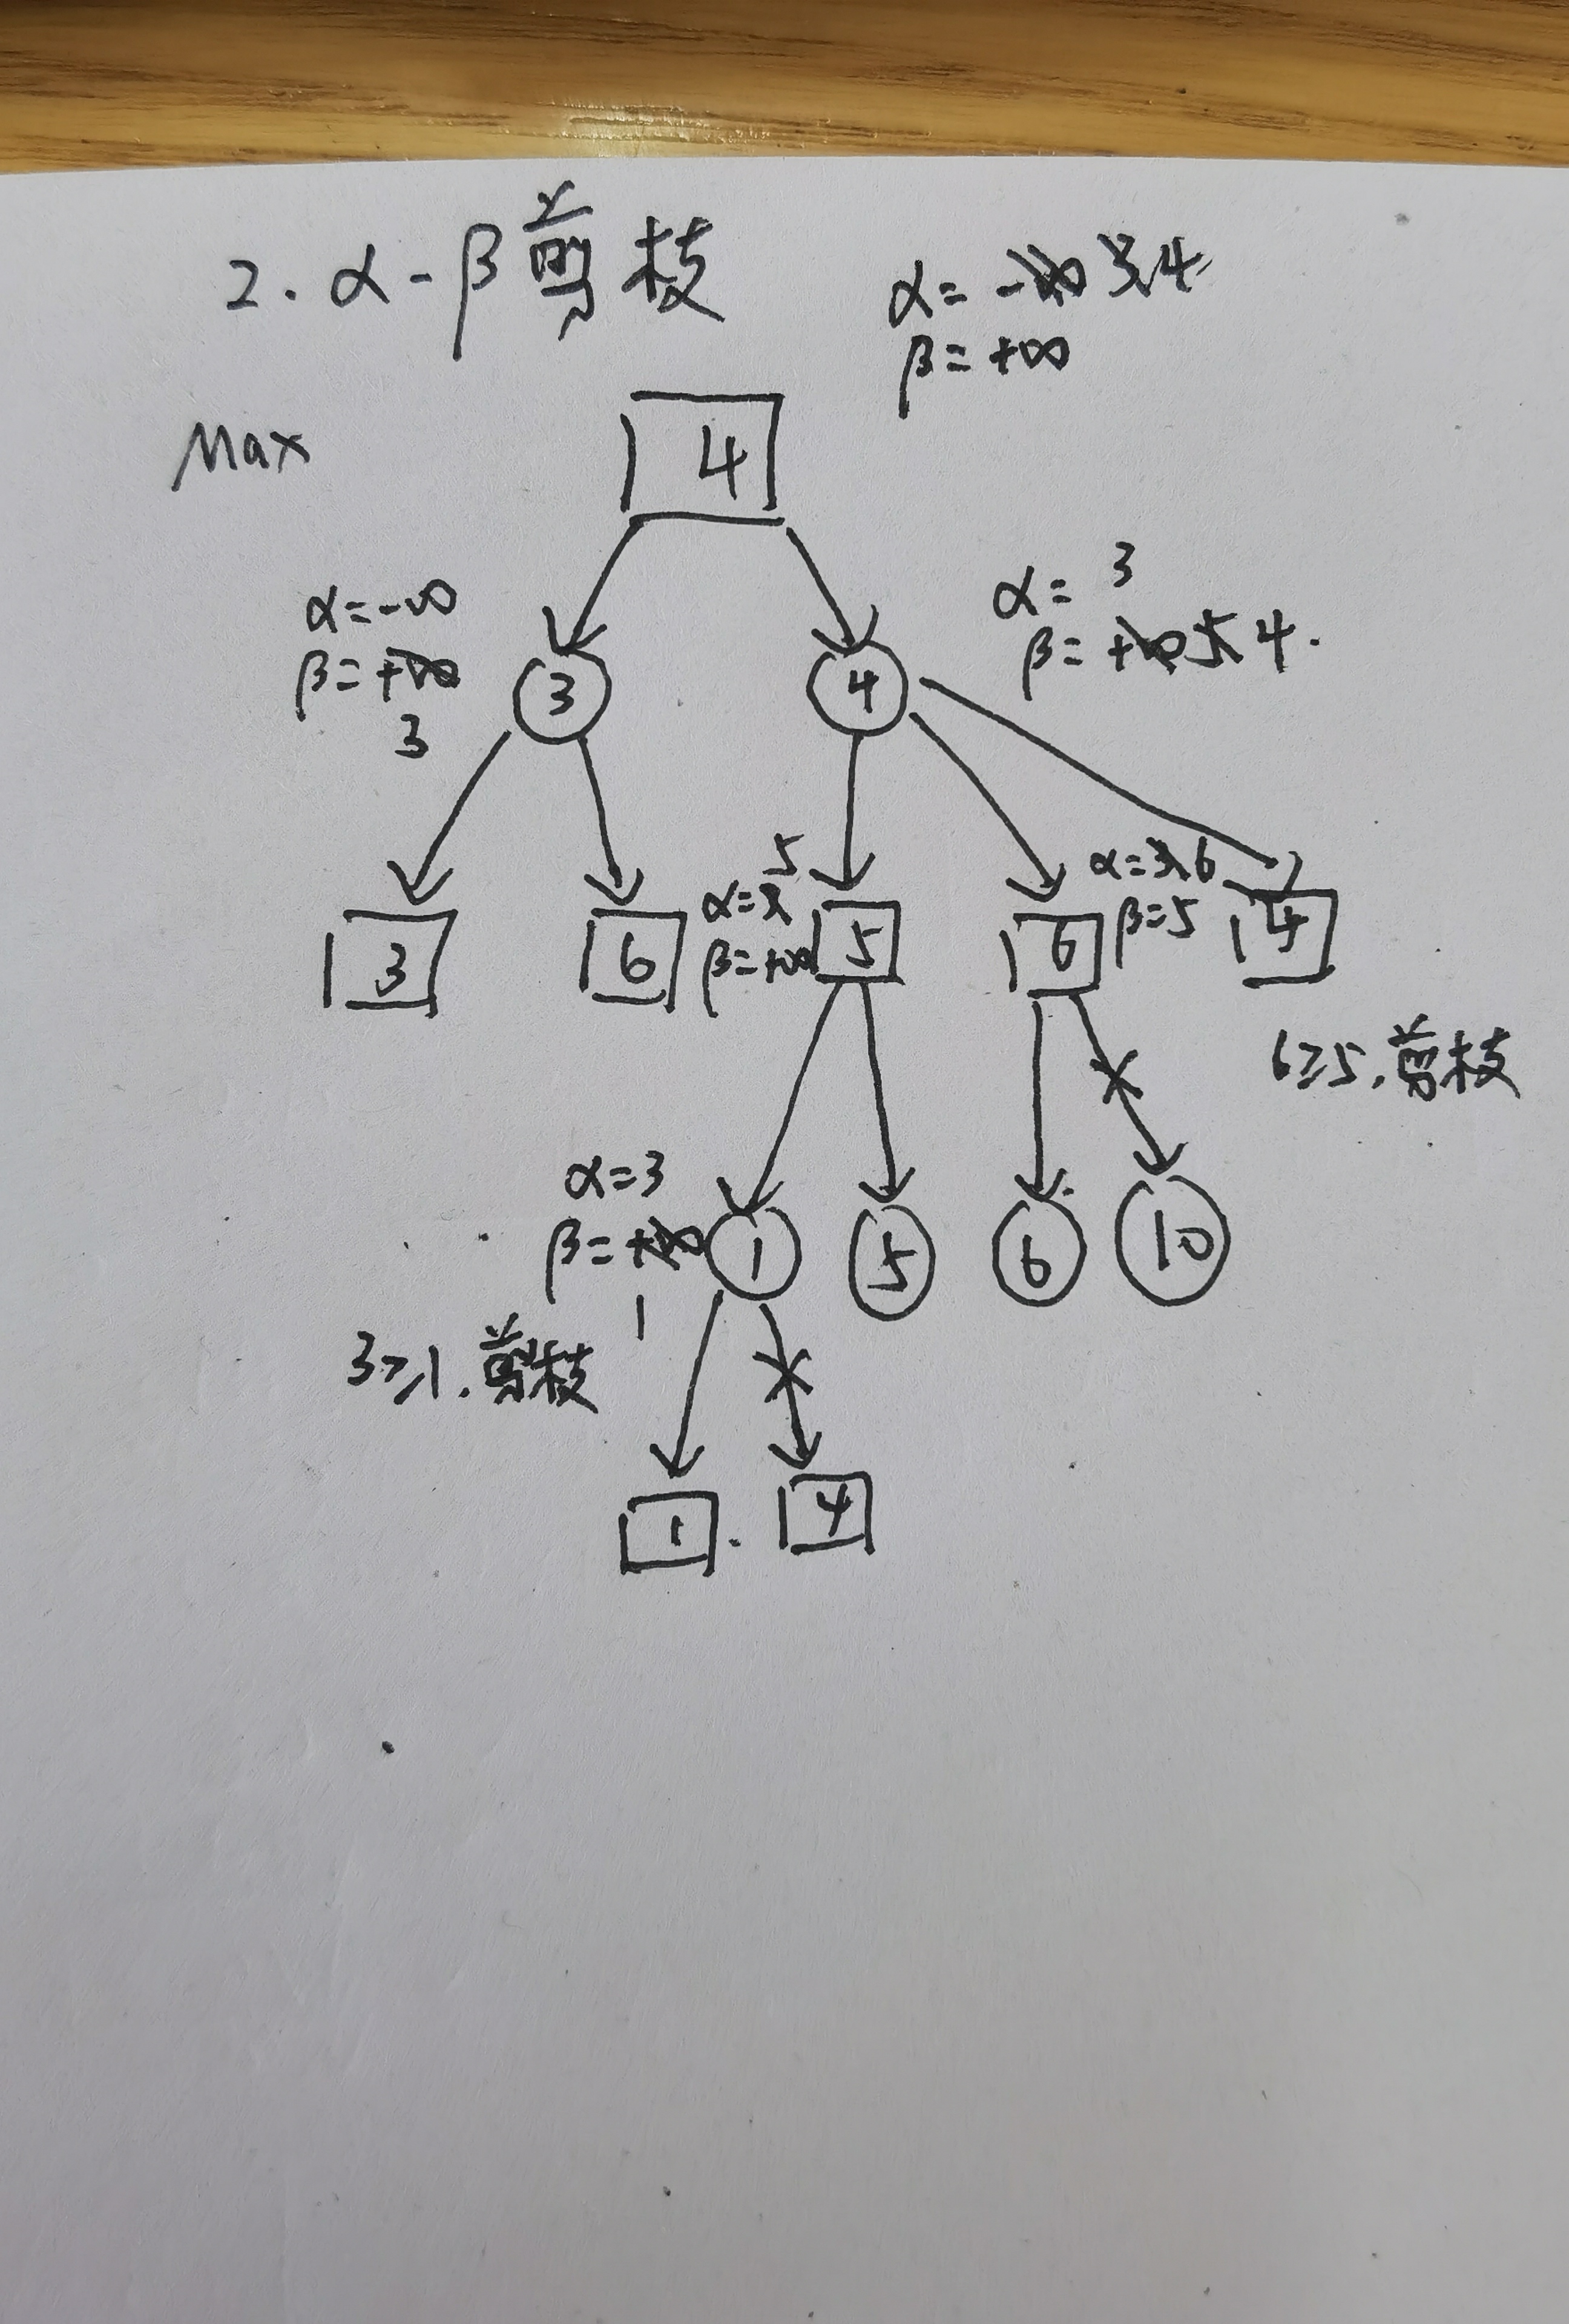 2. α-β剪枝
α= -∞ 3 4
β= +∞
Max
4
α=-∞
β=+∞
3
α= 3
β= +∞ 5 4.
3
4
5
α=3
β=+∞
α=3 6
β=5
3
6
5
6
4
6≥5.剪枝
α=3
β=+∞
1
1
5
6
10
3≥1.剪枝
1
4